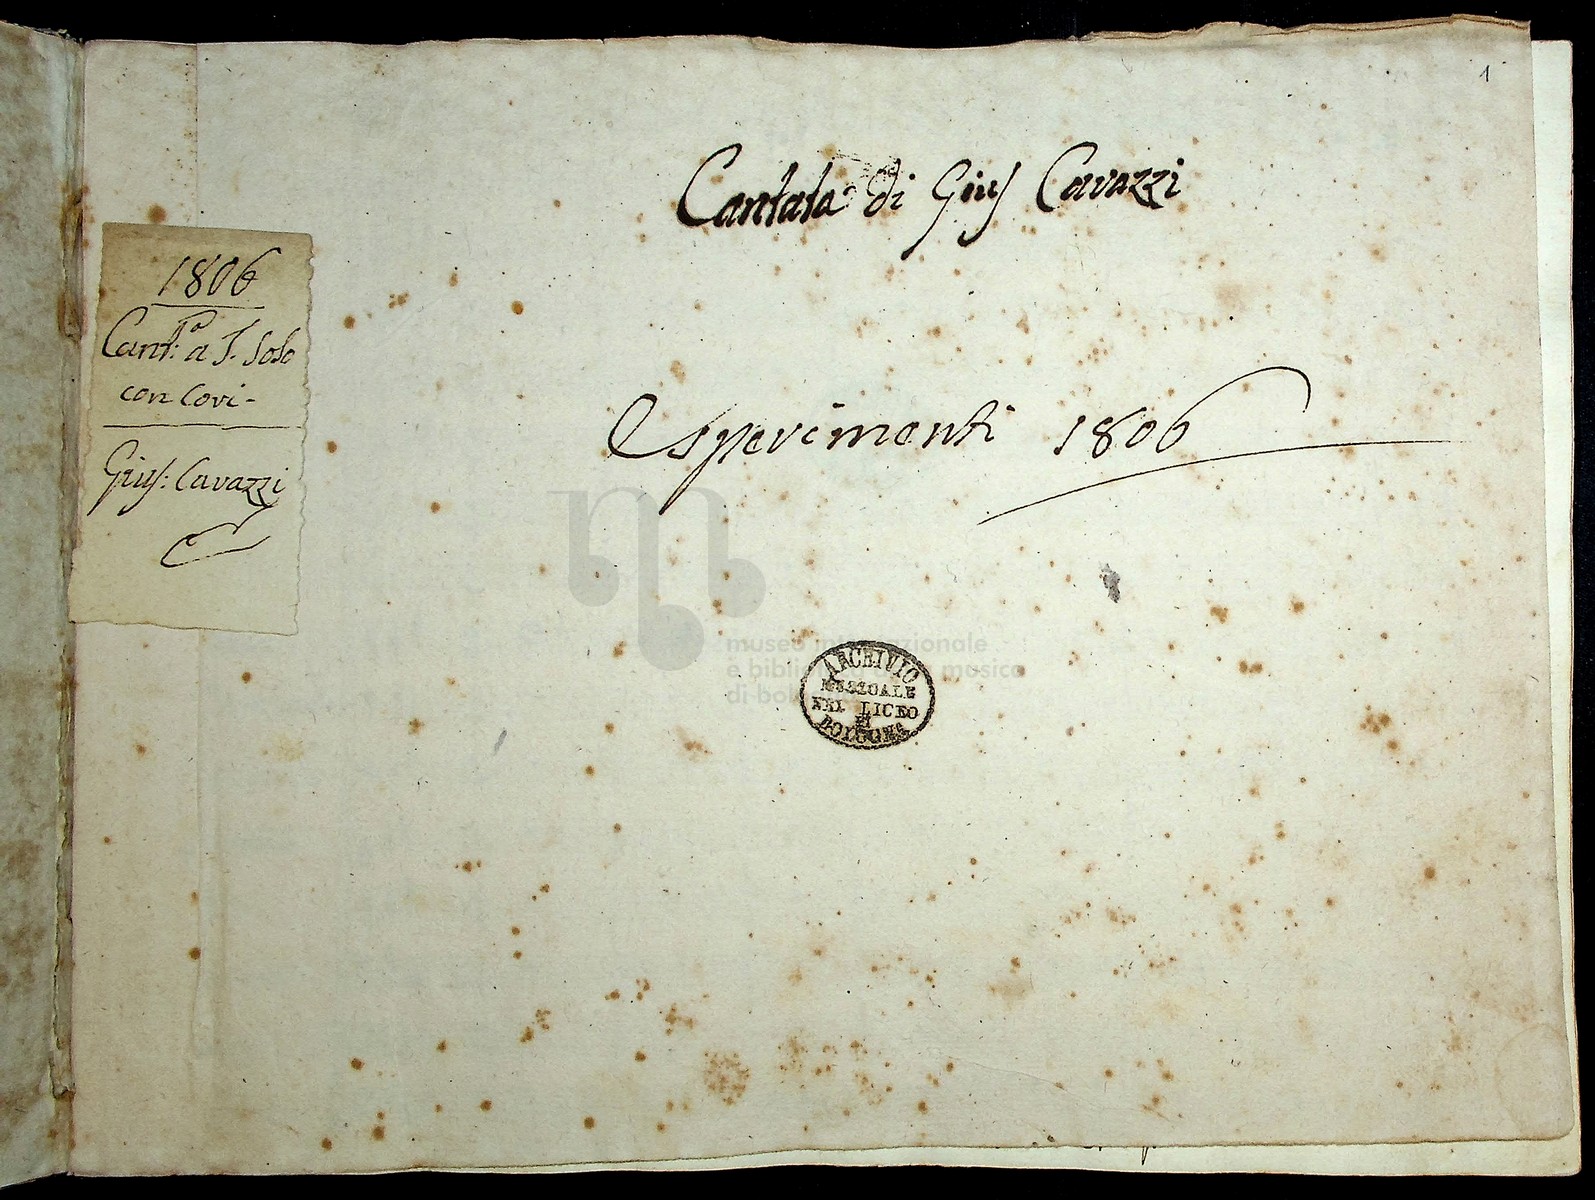 1
Cantata di Gius Cavazzi
Esperimenti 1806
1806
Cant:ta a T. Solo
con Cori-
Gius: Cavazzi
museo internazionale
e biblioteca della musica
di bologna
ARCHIVIO
MUSICALE
NEL LICEO
DI
BOLOGNA